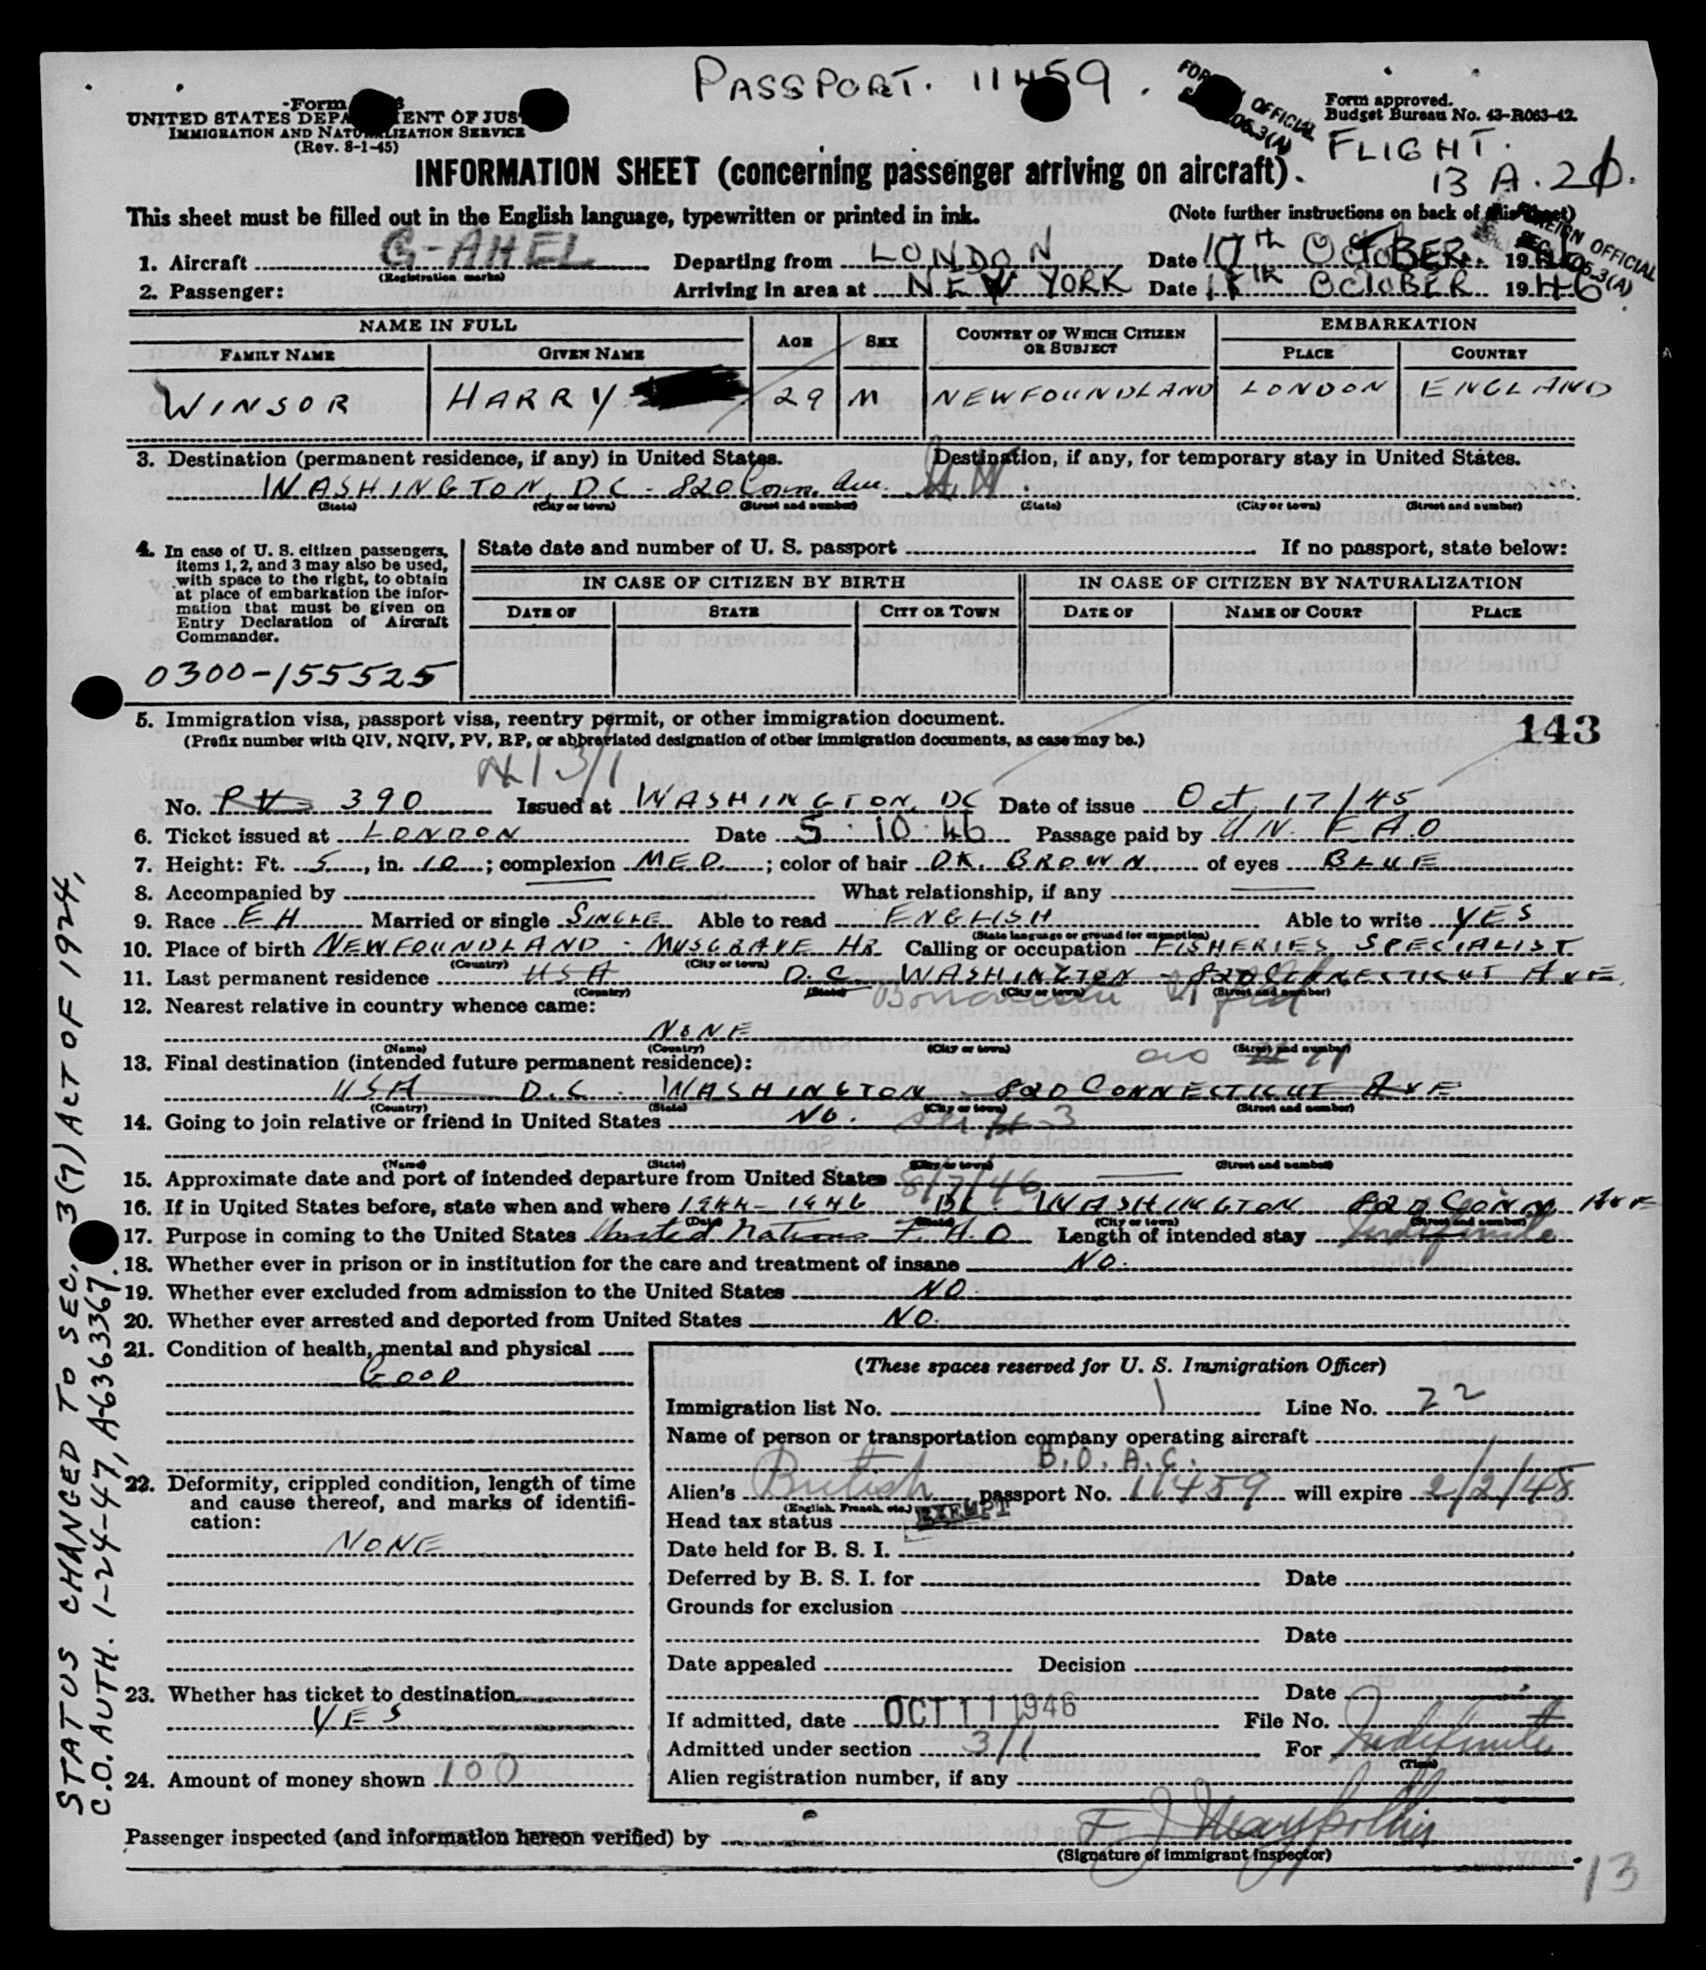 PASSPORT. 11459.
Form
UNITED STATES DEPARTMENT OF JUSTICE
IMMIGRATION AND NATURALIZATION SERVICE
(Rev. 8-1-45)
Form approved.
Budget Bureau No. 43-R063-42.
FLIGHT.
13 A. 20.
INFORMATION SHEET (concerning passenger arriving on aircraft).
This sheet must be filled out in the English language, typewritten or printed in ink. (Note further instructions on back of this sheet)
FOREIGN OFFICIAL
1. Aircraft G-AHEL Departing from LONDON Date 10th OCTOBER 1946
(Registration marks)
2. Passenger: Arriving in area at NEW YORK Date 11th OCTOBER 1946
NAME IN FULL AGE SEX COUNTRY OF WHICH CITIZEN OR SUBJECT EMBARKATION
FAMILY NAME GIVEN NAME PLACE COUNTRY
WINSOR HARRY 29 M NEWFOUNDLAND LONDON ENGLAND
3. Destination (permanent residence, if any) in United States. Destination, if any, for temporary stay in United States.
WASHINGTON, D.C. - 820 Conn. Ave. N.W.
(State) (City or town) (Street and number) (State) (City or town) (Street and number)
4. In case of U. S. citizen passengers, items 1, 2, and 3 may also be used, with space to the right, to obtain at place of embarkation the information that must be given on Entry Declaration of Aircraft Commander.
State date and number of U. S. passport If no passport, state below:
IN CASE OF CITIZEN BY BIRTH IN CASE OF CITIZEN BY NATURALIZATION
DATE OF STATE CITY OR TOWN DATE OF NAME OF COURT PLACE
0300-155525
5. Immigration visa, passport visa, reentry permit, or other immigration document. 143
(Prefix number with QIV, NQIV, PV, RP, or abbreviated designation of other immigration documents, as case may be.)
3/1
No. PV- 390 Issued at WASHINGTON, DC Date of issue Oct. 17/45
6. Ticket issued at LONDON Date 5.10.46 Passage paid by U.N. F.A.O
7. Height: Ft. 5, in. 10; complexion MED.; color of hair DK. BROWN of eyes BLUE
8. Accompanied by What relationship, if any
9. Race EH Married or single SINGLE Able to read ENGLISH Able to write YES
(State language or ground for exemption)
10. Place of birth NEWFOUNDLAND - MUSGRAVE HR Calling or occupation FISHERIES SPECIALIST
(Country) (City or town)
11. Last permanent residence USA D.C. WASHINGTON - 820 CONNECTICUT AVE
(Country) (State) (City or town) (Street and number)
Bonavista Nfld
12. Nearest relative in country whence came:
NONE
(Name) (Country) (City or town) (Street and number)
13. Final destination (intended future permanent residence): as 11
USA D.C. WASHINGTON - 820 CONNECTICUT AVE
(Country) (State) (City or town) (Street and number)
14. Going to join relative or friend in United States NO.
(Name) (State) (City or town) (Street and number)
15. Approximate date and port of intended departure from United States 8/7/46
16. If in United States before, state when and where 1944-1946 DC WASHINGTON 820 CONN AVE
(Date) (State) (City or town) (Street and number)
17. Purpose in coming to the United States United Nations F.A.O Length of intended stay Indefinite
18. Whether ever in prison or in institution for the care and treatment of insane NO.
19. Whether ever excluded from admission to the United States NO.
20. Whether ever arrested and deported from United States NO.
21. Condition of health, mental and physical
GOOD
22. Deformity, crippled condition, length of time and cause thereof, and marks of identification:
NONE
23. Whether has ticket to destination
YES
24. Amount of money shown 100
(These spaces reserved for U. S. Immigration Officer)
Immigration list No. 1 Line No. 22
Name of person or transportation company operating aircraft
B.O.A.C.
Alien's British passport No. 11459 will expire 2/2/48
(English, French, etc.)
Head tax status EXEMPT
Date held for B. S. I.
Deferred by B. S. I. for Date
Grounds for exclusion
Date
Date appealed Decision
Date
If admitted, date OCT 11 1946 File No.
Admitted under section 3/1 For Indefinite
(Time)
Alien registration number, if any
Passenger inspected (and information hereon verified) by
(Signature of immigrant inspector)
13
STATUS CHANGED TO SEC. 3(7) ACT OF 1924,
C.O. AUTH. 1-24-47, A-6363367.